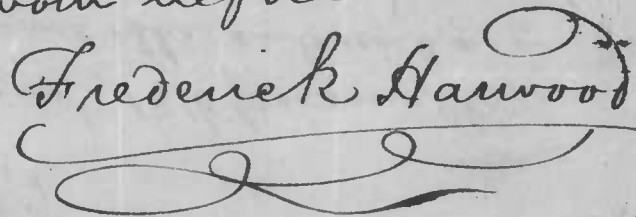 Frederick Harwood